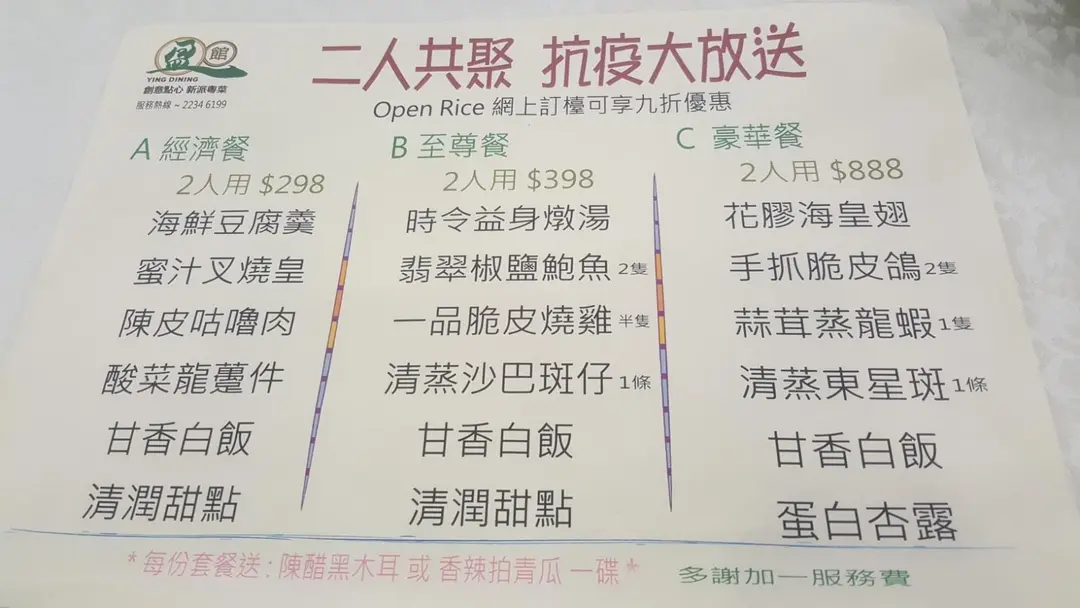 盈館
YING DINING
創意點心 新派粵菜
服務熱線~2234 6199
二人共聚 抗疫大放送
Open Rice 網上訂檯可享九折優惠
A 經濟餐
2人用 $298
海鮮豆腐羹
蜜汁叉燒皇
陳皮咕嚕肉
酸菜龍躉件
甘香白飯
清潤甜點
B 至尊餐
2人用 $398
時令益身燉湯
翡翠椒鹽鮑魚 2隻
一品脆皮燒雞 半隻
清蒸沙巴斑仔 1條
甘香白飯
清潤甜點
C 豪華餐
2人用 $888
花膠海皇翅
手抓脆皮鴿 2隻
蒜茸蒸龍蝦 1隻
清蒸東星斑 1條
甘香白飯
蛋白杏露
*每份套餐送:陳醋黑木耳 或 香辣拍青瓜 一碟*
多謝加一服務費